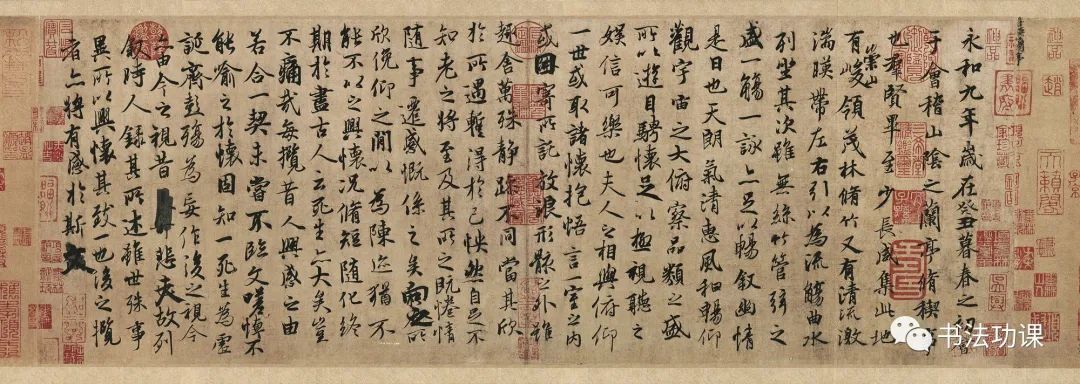 永和九年歲在癸丑暮春之初會
于會稽山陰之蘭亭脩禊事
也羣賢畢至少長咸集此地
有崇山峻領茂林脩竹又有清流激
湍暎帶左右引以為流觴曲水
列坐其次雖無絲竹管弦之
盛一觴一詠亦足以暢敘幽情
是日也天朗氣清惠風和暢仰
觀宇宙之大俯察品類之盛
所以遊目騁懷足以極視聽之
娛信可樂也夫人之相與俯仰
一世或取諸懷抱悟言一室之內
或因寄所託放浪形骸之外雖
趣舍萬殊靜躁不同當其欣
於所遇蹔得於己怏然自足不
知老之將至及其所之既惓情
隨事遷感慨係之矣向之所
欣俛仰之閒以為陳迹猶不
能不以之興懷況脩短隨化終
期於盡古人云死生亦大矣豈
不痛哉每攬昔人興感之由
若合一契未嘗不臨文嗟悼不
能喻之於懷固知一死生為虛
誕齊彭殤為妄作後之視今
亦由今之視昔悲夫故列
敘時人錄其所述雖世殊事
異所以興懷其致一也後之攬
者亦將有感於斯文
书法功课